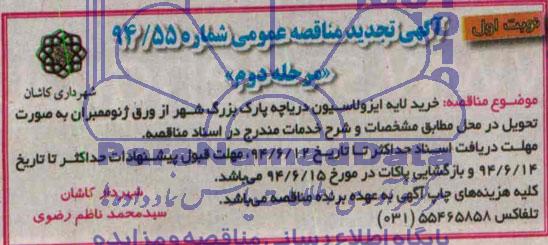 نوبت اول
آگهی تجدید مناقصه عمومی شماره ۹۴/۵۵
«مرحله دوم»
شهرداری کاشان
موضوع مناقصه: خرید لایه ایزولاسیون دریاچه پارک بزرگ شهر از ورق ژئوممبران به صورت
تحویل در محل مطابق مشخصات و شرح خدمات مندرج در اسناد مناقصه.
مهلت دریافت اسناد حداکثر تا تاریخ ۹۴/۶/۱۲، مهلت قبول پیشنهادات حداکثر تا تاریخ
۹۴/۶/۱۴ و بازگشایی پاکات در مورخ ۹۴/۶/۱۵ می‌باشد.
کلیه هزینه‌های چاپ آگهی به عهده برنده مناقصه می‌باشد.
تلفاکس ۵۵۴۶۵۸۵۸ (۰۳۱)
شهردار کاشان
سیدمحمد ناظم رضوی
ParsNamadData
پایگاه اطلاع رسانی مناقصه و مزایده